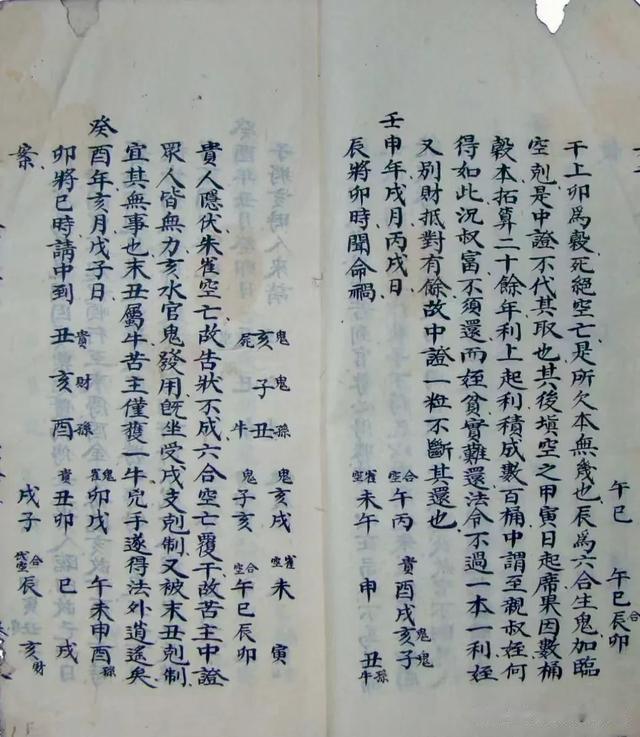 午巳 午巳辰卯合
干上卯為穀死絕空亡是所欠本無幾也辰為六合生鬼加臨
空剋是中證不代其取也其後填空之甲寅日起席果因數桶
穀本拓算二十餘年利上起利積成數百桶中謂至親叔姪何
得如此況叔富不須還而姪貧實難還法令不過一本一利姪
又別財抵對有餘故中證一粒不斷其還也
壬申年戌月丙戌日
辰將卯時聞命禍
合空午丙 貴酉戌亥鬼子鬼
雀空未午 申 丑孫牛
鬼亥戌 雀空未 寅
亥鬼子鬼丑孫 死 牛
鬼子亥 合空午巳辰卯
貴人隱伏朱雀空亡故告狀不成六合空亡覆干故苦主中證
眾人皆無力亥水官鬼發用既坐受戌支剋制又被末丑剋制
宜其無事也末丑屬牛苦主僅獲一牛完手遂得法外逍遙矣
癸酉年亥月戊子日
卯將巳時請中到
案
丑貴亥財酉孫
雀鬼卯戌 午未申酉孫
貴丑卯 巳 戌
戌子 合空辰 亥財